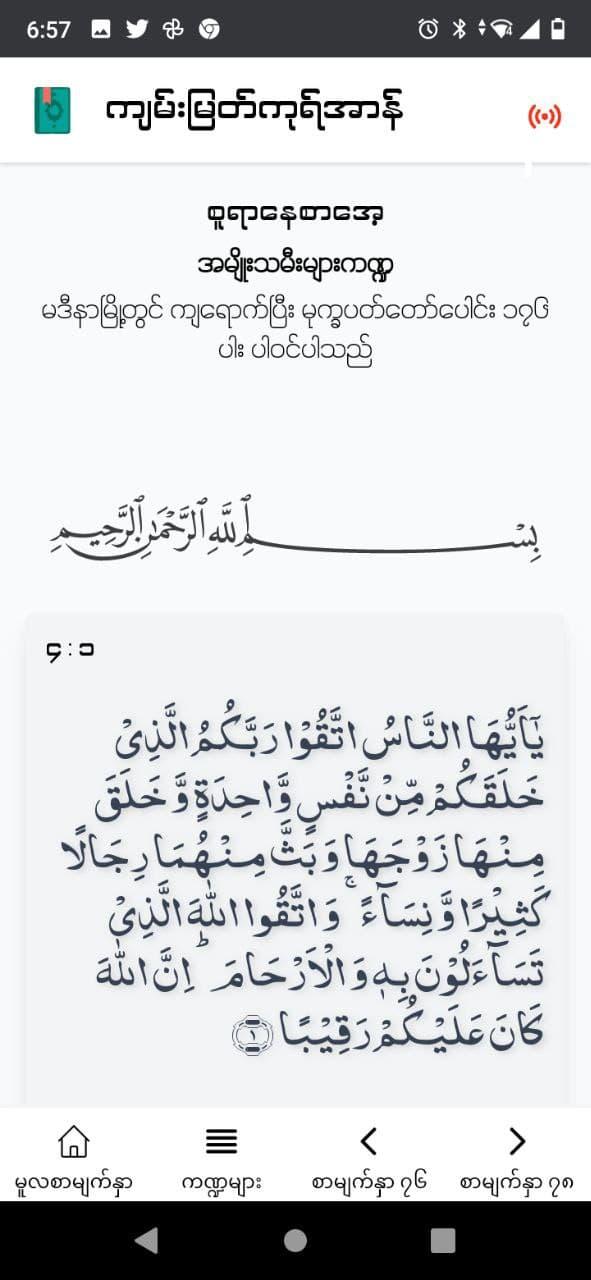 6:57
ကျမ်းမြတ်ကုရ်အာန်
စူရာနေစာအေ့
အမျိုးသမီးများကဏ္ဍ
မဒီနာမြို့တွင် ကျရောက်ပြီး မုက္ခပတ်တော်ပေါင်း ၁၇၆
ပါး ပါဝင်ပါသည်
بِسْمِ ٱللَّهِ ٱلرَّحْمَٰنِ ٱلرَّحِيمِ
၄:၁
يٰۤاَيُّهَا النَّاسُ اتَّقُوْا رَبَّكُمُ الَّذِىْ
خَلَقَكُمْ مِّنْ نَّفْسٍ وَّاحِدَةٍ وَّخَلَقَ
مِنْهَا زَوْجَهَا وَبَثَّ مِنْهُمَا رِجَالًا
كَثِيْرًا وَّنِسَآءً‌ ۚ وَاتَّقُوا اللّٰهَ الَّذِىْ
تَسَآءَلُوْنَ بِهٖ وَالْاَرْحَامَ‌ ؕ اِنَّ اللّٰهَ
كَانَ عَلَيْكُمْ رَقِيْبًا ‏﴿۱﴾
မူလစာမျက်နှာ ကဏ္ဍများ စာမျက်နှာ ၇၆ စာမျက်နှာ ၇၈